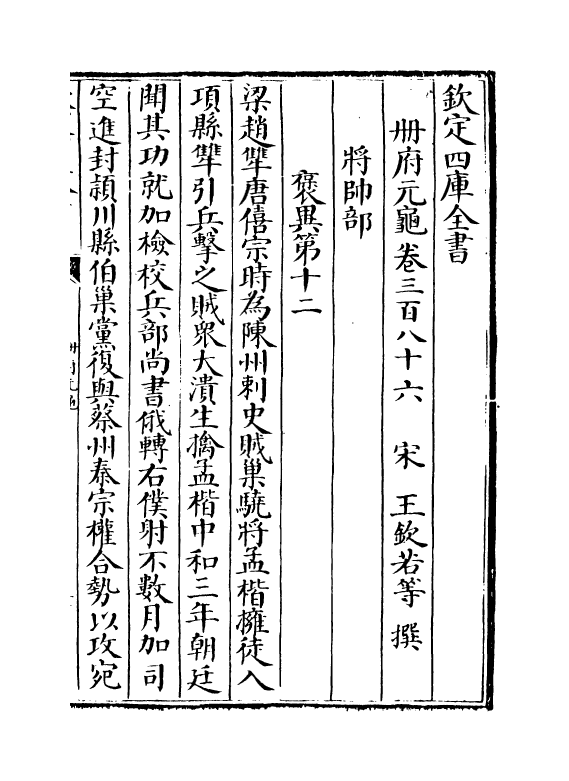 欽定四庫全書
冊府元龜卷三百八十六　宋　王欽若等　撰
將帥部
褒異第十二
梁趙犨唐僖宗時為陳州刺史賊巢驍將孟楷擁徒入
項縣犨引兵擊之賊衆大潰生擒孟楷中和三年朝廷
聞其功就加檢校兵部尚書俄轉右僕射不數月加司
空進封頴川縣伯巢黨復與蔡州秦宗權合勢以攻宛